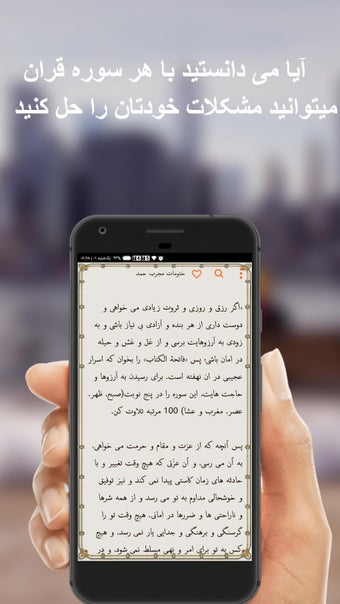 آیا می دانستید با هر سوره قران
میتوانید مشکلات خودتان را حل کنید
ختومات مجرب حمد
اگر رزق و روزی و ثروت زیادی می خواهی و
دوست داری از هر بنده و آزادی بی نیاز باشی و به
زودی به آرزوهایت برسی و از غل و غش و حیله
در امان باشی؛ پس «فاتحة الکتاب» را بخوان که اسرار
عجیبی در آن نهفته است. برای رسیدن به آرزوها و
حاجت هایت، این سوره را در پنج نوبت(صبح، ظهر،
عصر، مغرب و عشا) 100 مرتبه تلاوت کن.
پس آنچه که از عزت و مقام و حرمت می خواهی،
به آن می رسی. و آن عزّتی که هیچ وقت تغییر و با
حادثه های زمان کاستی پیدا نمی کند و نیز توفیق
و خوشحالی مداوم به تو می رسد و از همه شرها
و ناراحتی ها و ضررها در امانی. هیچ وقت تو را
گرسنگی و برهنگی و جدایی یار نمی رسد. و هیچ
کس به تو برای امر و نهی مسلط نمی شود، و در